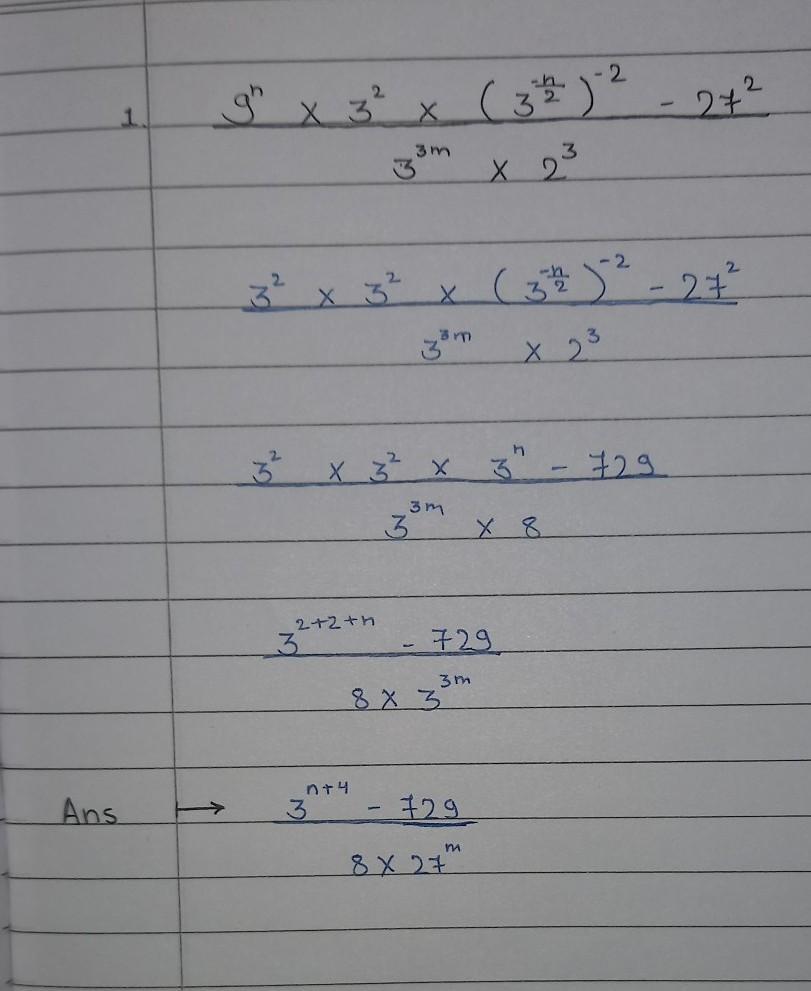 1. 9ⁿ × 3² × (3^(-n/2))⁻² - 27²
3^(3m) × 2³
3² × 3² × (3^(-n/2))⁻² - 27²
3^(3m) × 2³
3² × 3² × 3ⁿ - 729
3^(3m) × 8
3^(2+2+n) - 729
8 × 3^(3m)
Ans ↦ 3^(n+4) - 729
8 × 27^m